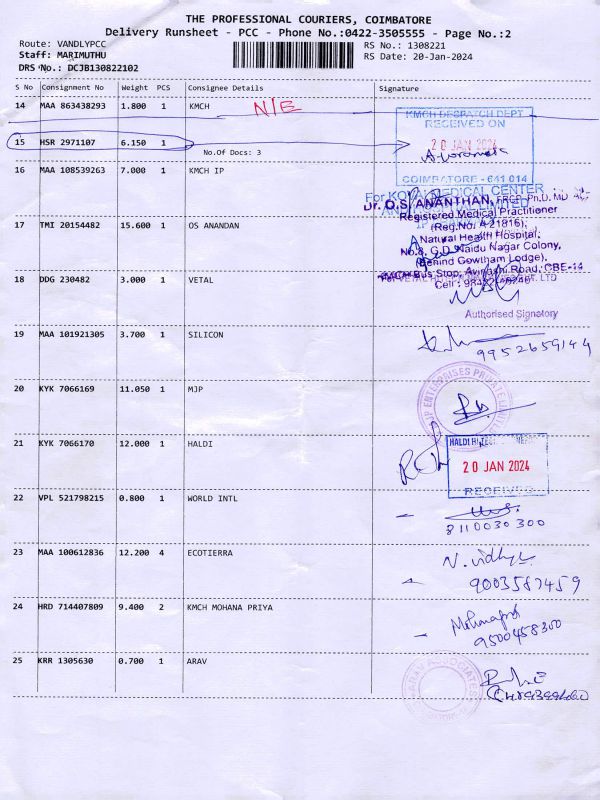 THE PROFESSIONAL COURIERS, COIMBATORE
Delivery Runsheet - PCC - Phone No.:0422-3505555 - Page No.:2
Route: VANDLYPCC RS No.: 1308221
Staff: MARIMUTHU RS Date: 20-Jan-2024
DRS No.: DCJB130822102
S No Consignment No Weight PCS Consignee Details Signature
14 MAA 863438293 1.800 1 KMCH N/E
KMCH DESPATCH DEPT
RECEIVED ON
15 HSR 2971107 6.150 1
No.Of Docs: 3
20 JAN 2024
16 MAA 108539263 7.000 1 KMCH IP
COIMBATORE - 641 014
For KOVAI MEDICAL CENTER
Dr. O.S. ANANTHAN, FRCP. Ph.D. MD
Registered Medical Practitioner
(Reg.No. A 21816),
17 TMI 20154482 15.600 1 OS ANANDAN
Natural Health Hospital,
No.8, G.D. Naidu Nagar Colony,
(Behind Gowtham Lodge),
KMCH Bus Stop, Avinashi Road, CBE-14
18 DDG 230482 3.000 1 VETAL
Authorised Signatory
19 MAA 101921305 3.700 1 SILICON
9952659144
20 KYK 7066169 11.050 1 MJP
MJP ENTERPRISES PRIVATE LIMITED
21 KYK 7066170 12.000 1 HALDI
20 JAN 2024
RECEIVED
22 VPL 521798215 0.800 1 WORLD INTL
8110030300
23 MAA 100612836 12.200 4 ECOTIERRA
N. Vidhya
9003587459
24 HRD 714407809 9.400 2 KMCH MOHANA PRIYA
9500458300
25 KRR 1305630 0.700 1 ARAV
ARAV ASSOCIATES